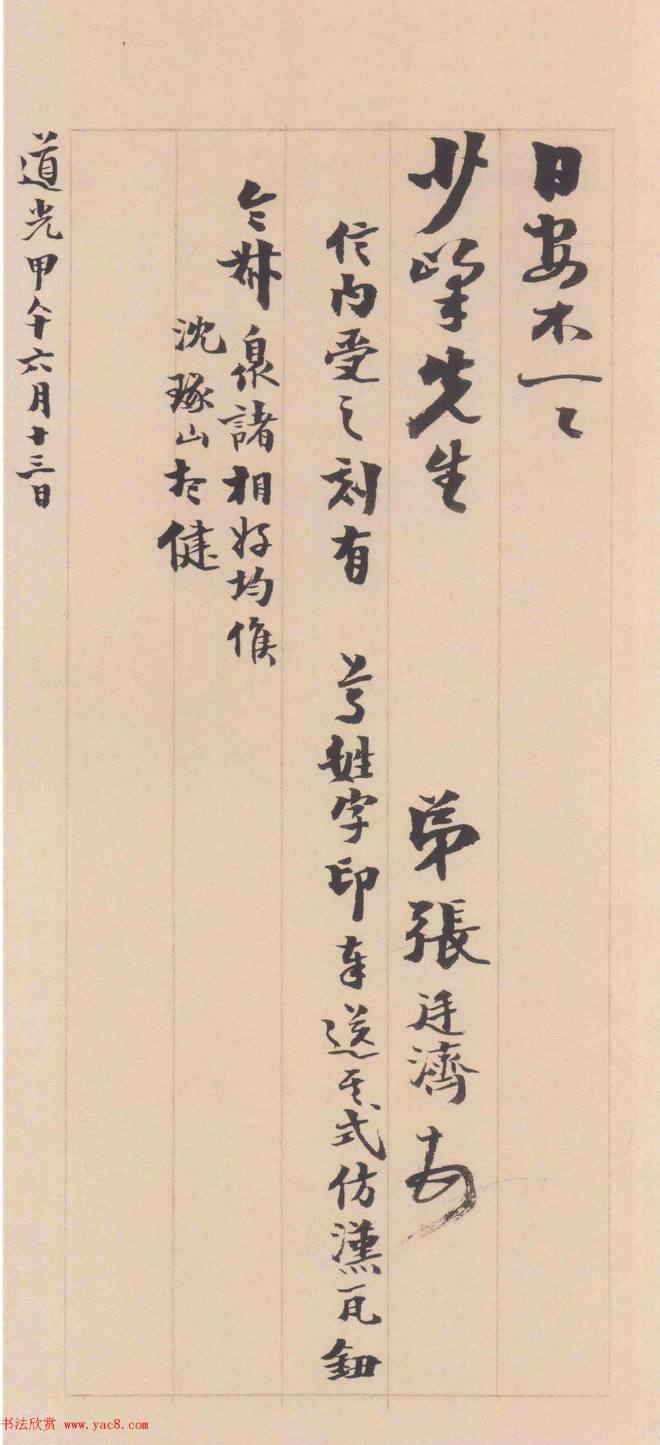 日安不一々
少峯先生 弟張廷濟手
信內受之刻有 尊姓字印奉送其式仿漢瓦鈕
令
泉諸相好均候
沈琢山在健
道光甲午六月十三日
书法欣赏 www.yac8.com